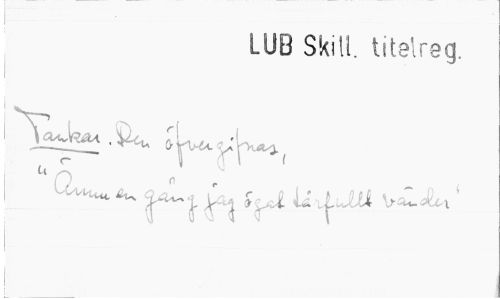 LUB Skill. titelreg.
Tankar. Den öfvergifnas,
"Ännu en gång jag ögat tårfullt vänder"